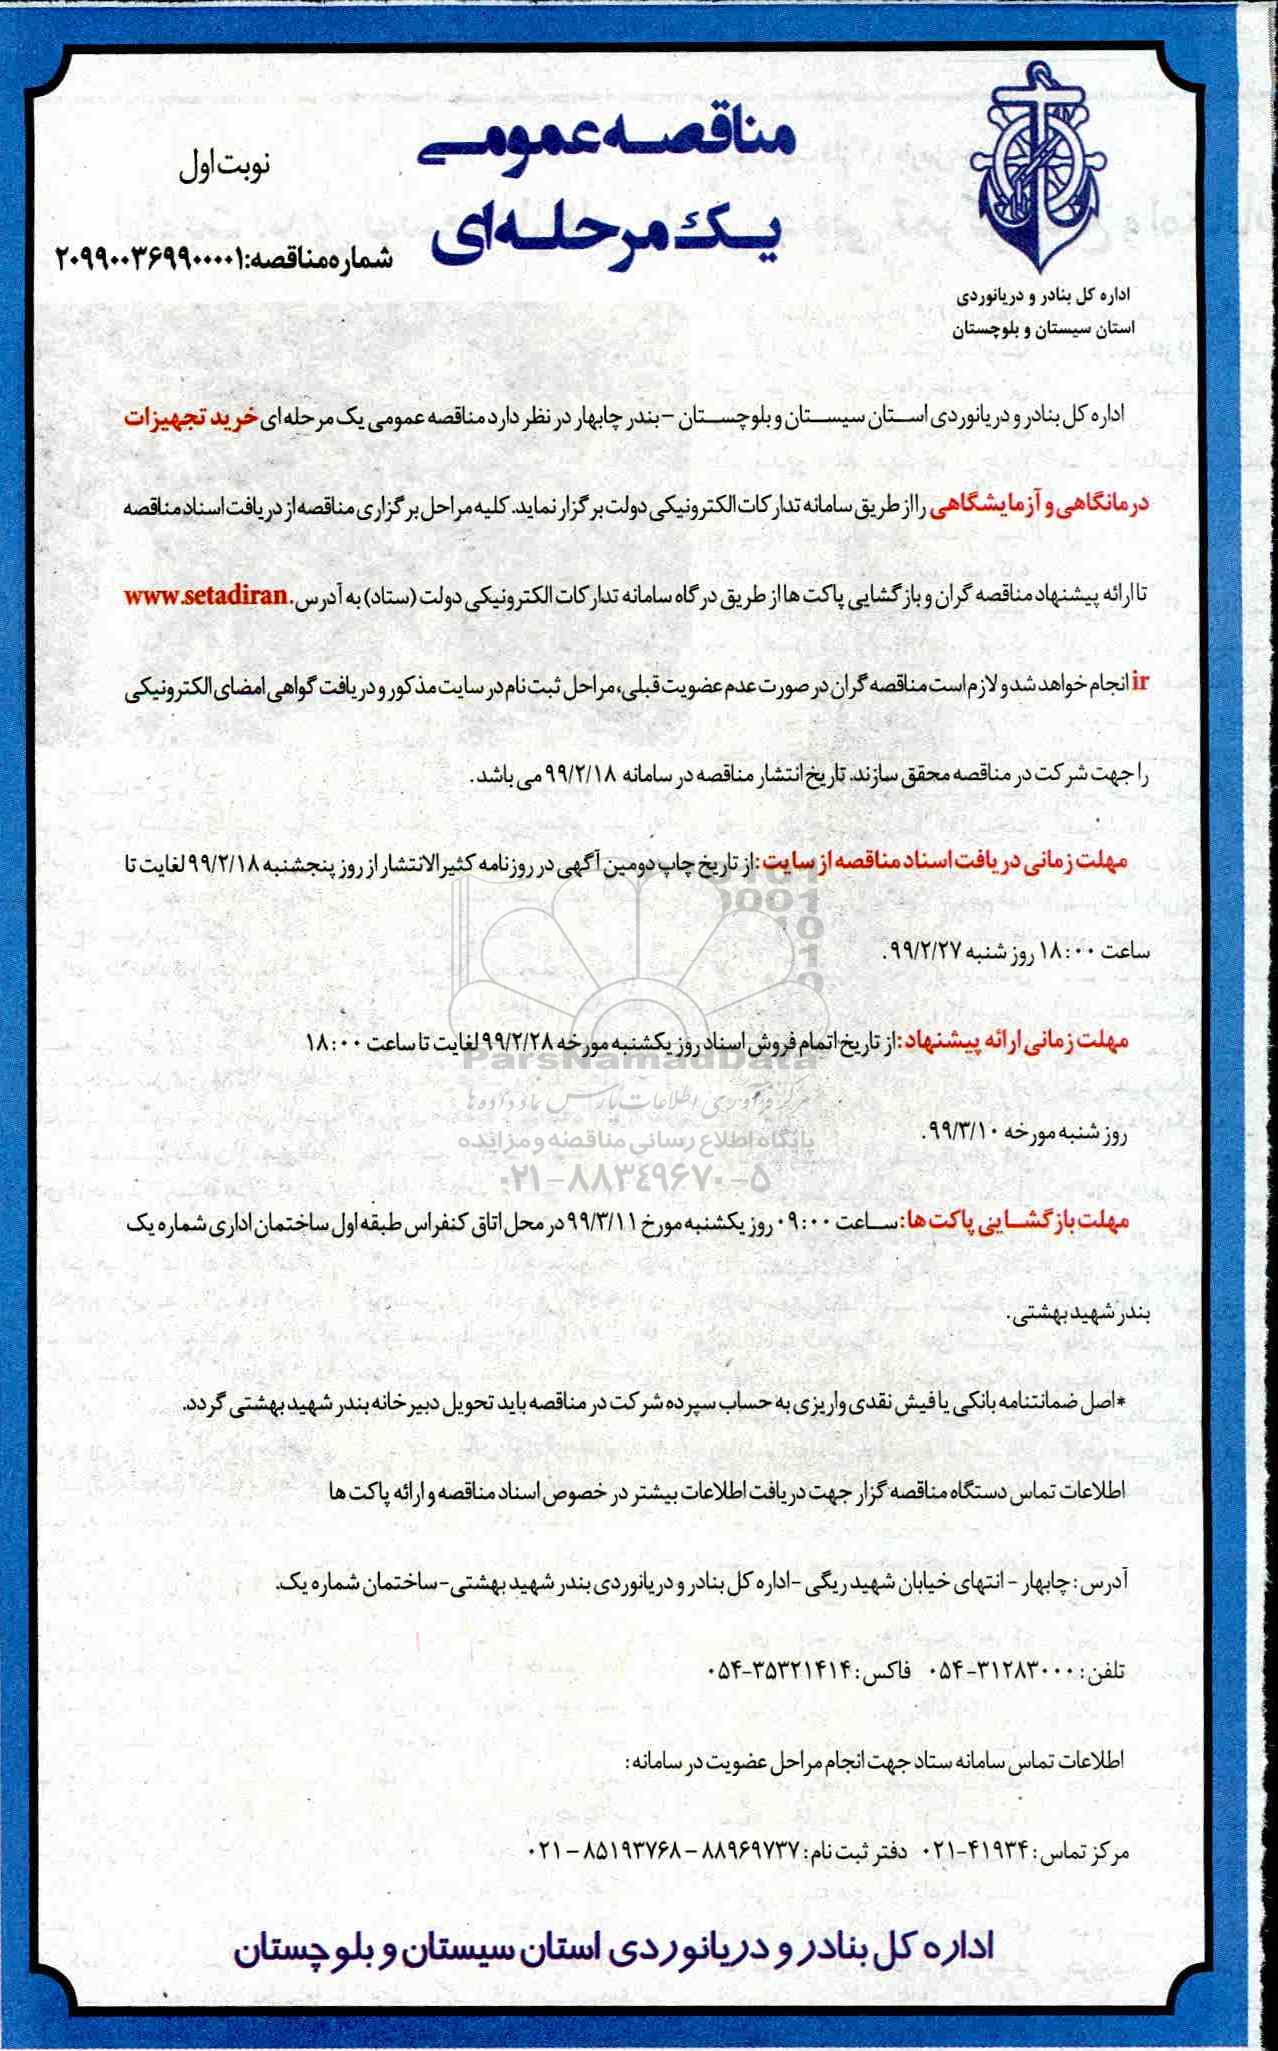 مناقصه عمومی
یک مرحله‌ای
نوبت اول
شماره مناقصه: ۲۰۹۹۰۰۳۶۹۹۰۰۰۰۰۱
اداره کل بنادر و دریانوردی
استان سیستان و بلوچستان
اداره کل بنادر و دریانوردی استان سیستان و بلوچستان - بندر چابهار در نظر دارد مناقصه عمومی یک مرحله ای خرید تجهیزات
درمانگاهی و آزمایشگاهی را از طریق سامانه تدارکات الکترونیکی دولت برگزار نماید. کلیه مراحل برگزاری مناقصه از دریافت اسناد مناقصه
تا ارائه پیشنهاد مناقصه گران و بازگشایی پاکت ها از طریق درگاه سامانه تدارکات الکترونیکی دولت (ستاد) به آدرس www.setadiran.
ir انجام خواهد شد و لازم است مناقصه گران در صورت عدم عضویت قبلی، مراحل ثبت نام در سایت مذکور و دریافت گواهی امضای الکترونیکی
را جهت شرکت در مناقصه محقق سازند. تاریخ انتشار مناقصه در سامانه ۹۹/۲/۱۸ می باشد.
مهلت زمانی دریافت اسناد مناقصه از سایت: از تاریخ چاپ دومین آگهی در روزنامه کثیرالانتشار از روز پنجشنبه ۹۹/۲/۱۸ لغایت تا
ساعت ۱۸:۰۰ روز شنبه ۹۹/۲/۲۷.
مهلت زمانی ارائه پیشنهاد: از تاریخ اتمام فروش اسناد روز یکشنبه مورخه ۹۹/۲/۲۸ لغایت تا ساعت ۱۸:۰۰
ParsNamadData
مرکز فرآوری اطلاعات پارس نماد داده ها
روز شنبه مورخه ۹۹/۳/۱۰.
پایگاه اطلاع رسانی مناقصه و مزایده
۰۲۱-۸۸۳۴۹۶۷۰-۵
مهلت بازگشایی پاکت ها: ساعت ۰۹:۰۰ روز یکشنبه مورخ ۹۹/۳/۱۱ در محل اتاق کنفراس طبقه اول ساختمان اداری شماره یک
بندر شهید بهشتی.
*اصل ضمانتنامه بانکی یا فیش نقدی واریزی به حساب سپرده شرکت در مناقصه باید تحویل دبیرخانه بندر شهید بهشتی گردد.
اطلاعات تماس دستگاه مناقصه گزار جهت دریافت اطلاعات بیشتر در خصوص اسناد مناقصه و ارائه پاکت ها
آدرس: چابهار - انتهای خیابان شهید ریگی - اداره کل بنادر و دریانوردی بندر شهید بهشتی - ساختمان شماره یک.
تلفن: ۳۱۲۸۳۰۰۰-۰۵۴ فاکس: ۳۵۳۲۱۴۱۴-۰۵۴
اطلاعات تماس سامانه ستاد جهت انجام مراحل عضویت در سامانه:
مرکز تماس: ۴۱۹۳۴-۰۲۱ دفتر ثبت نام: ۸۸۹۶۹۷۳۷ - ۸۵۱۹۳۷۶۸ - ۰۲۱
اداره کل بنادر و دریانوردی استان سیستان و بلوچستان